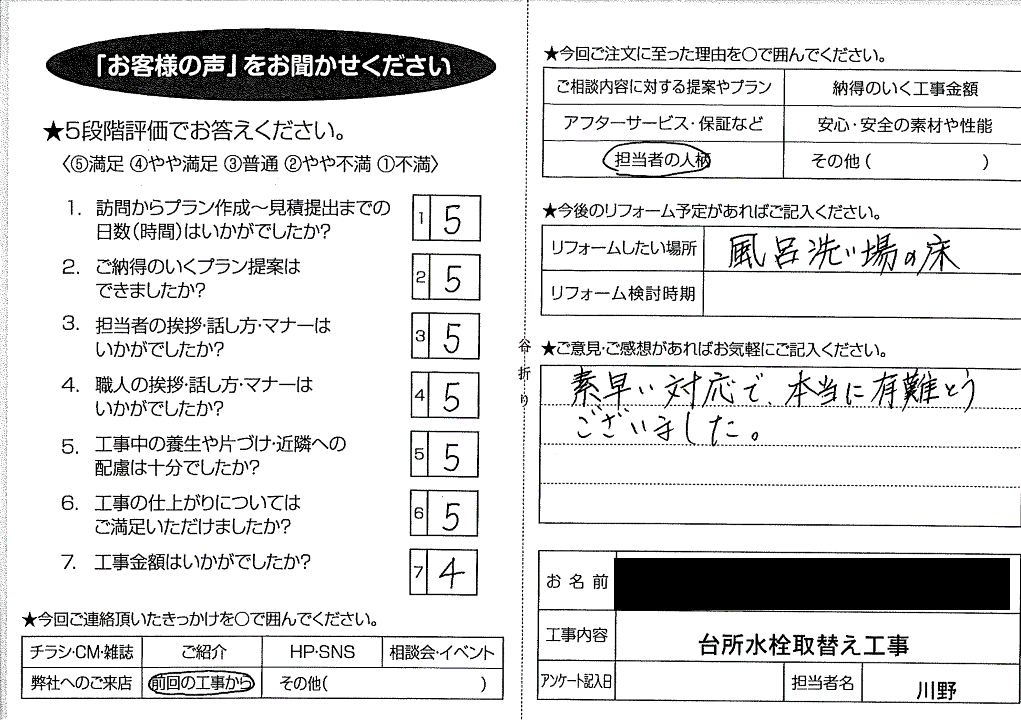 「お客様の声」をお聞かせください
★5段階評価でお答えください。
〈⑤満足 ④やや満足 ③普通 ②やや不満 ①不満〉
1. 訪問からプラン作成～見積提出までの
日数(時間)はいかがでしたか?
1 5
2. ご納得のいくプラン提案は
できましたか?
2 5
3. 担当者の挨拶・話し方・マナーは
いかがでしたか?
3 5
4. 職人の挨拶・話し方・マナーは
いかがでしたか?
4 5
5. 工事中の養生や片づけ・近隣への
配慮は十分でしたか?
5 5
6. 工事の仕上がりについては
ご満足いただけましたか?
6 5
7. 工事金額はいかがでしたか?
7 4
★今回ご連絡頂いたきっかけを○で囲んでください。
チラシ・CM・雑誌 ご紹介 HP・SNS 相談会・イベント
弊社へのご来店 前回の工事から その他( )
谷折り
★今回ご注文に至った理由を○で囲んでください。
ご相談内容に対する提案やプラン 納得のいく工事金額
アフターサービス・保証など 安心・安全の素材や性能
担当者の人柄 その他( )
★今後のリフォーム予定があればご記入ください。
リフォームしたい場所 風呂洗い場の床
リフォーム検討時期
★ご意見・ご感想があればお気軽にご記入ください。
素早い対応で、本当に有難とう
ございました。
お名前
工事内容 台所水栓取替え工事
アンケート記入日 担当者名 川野